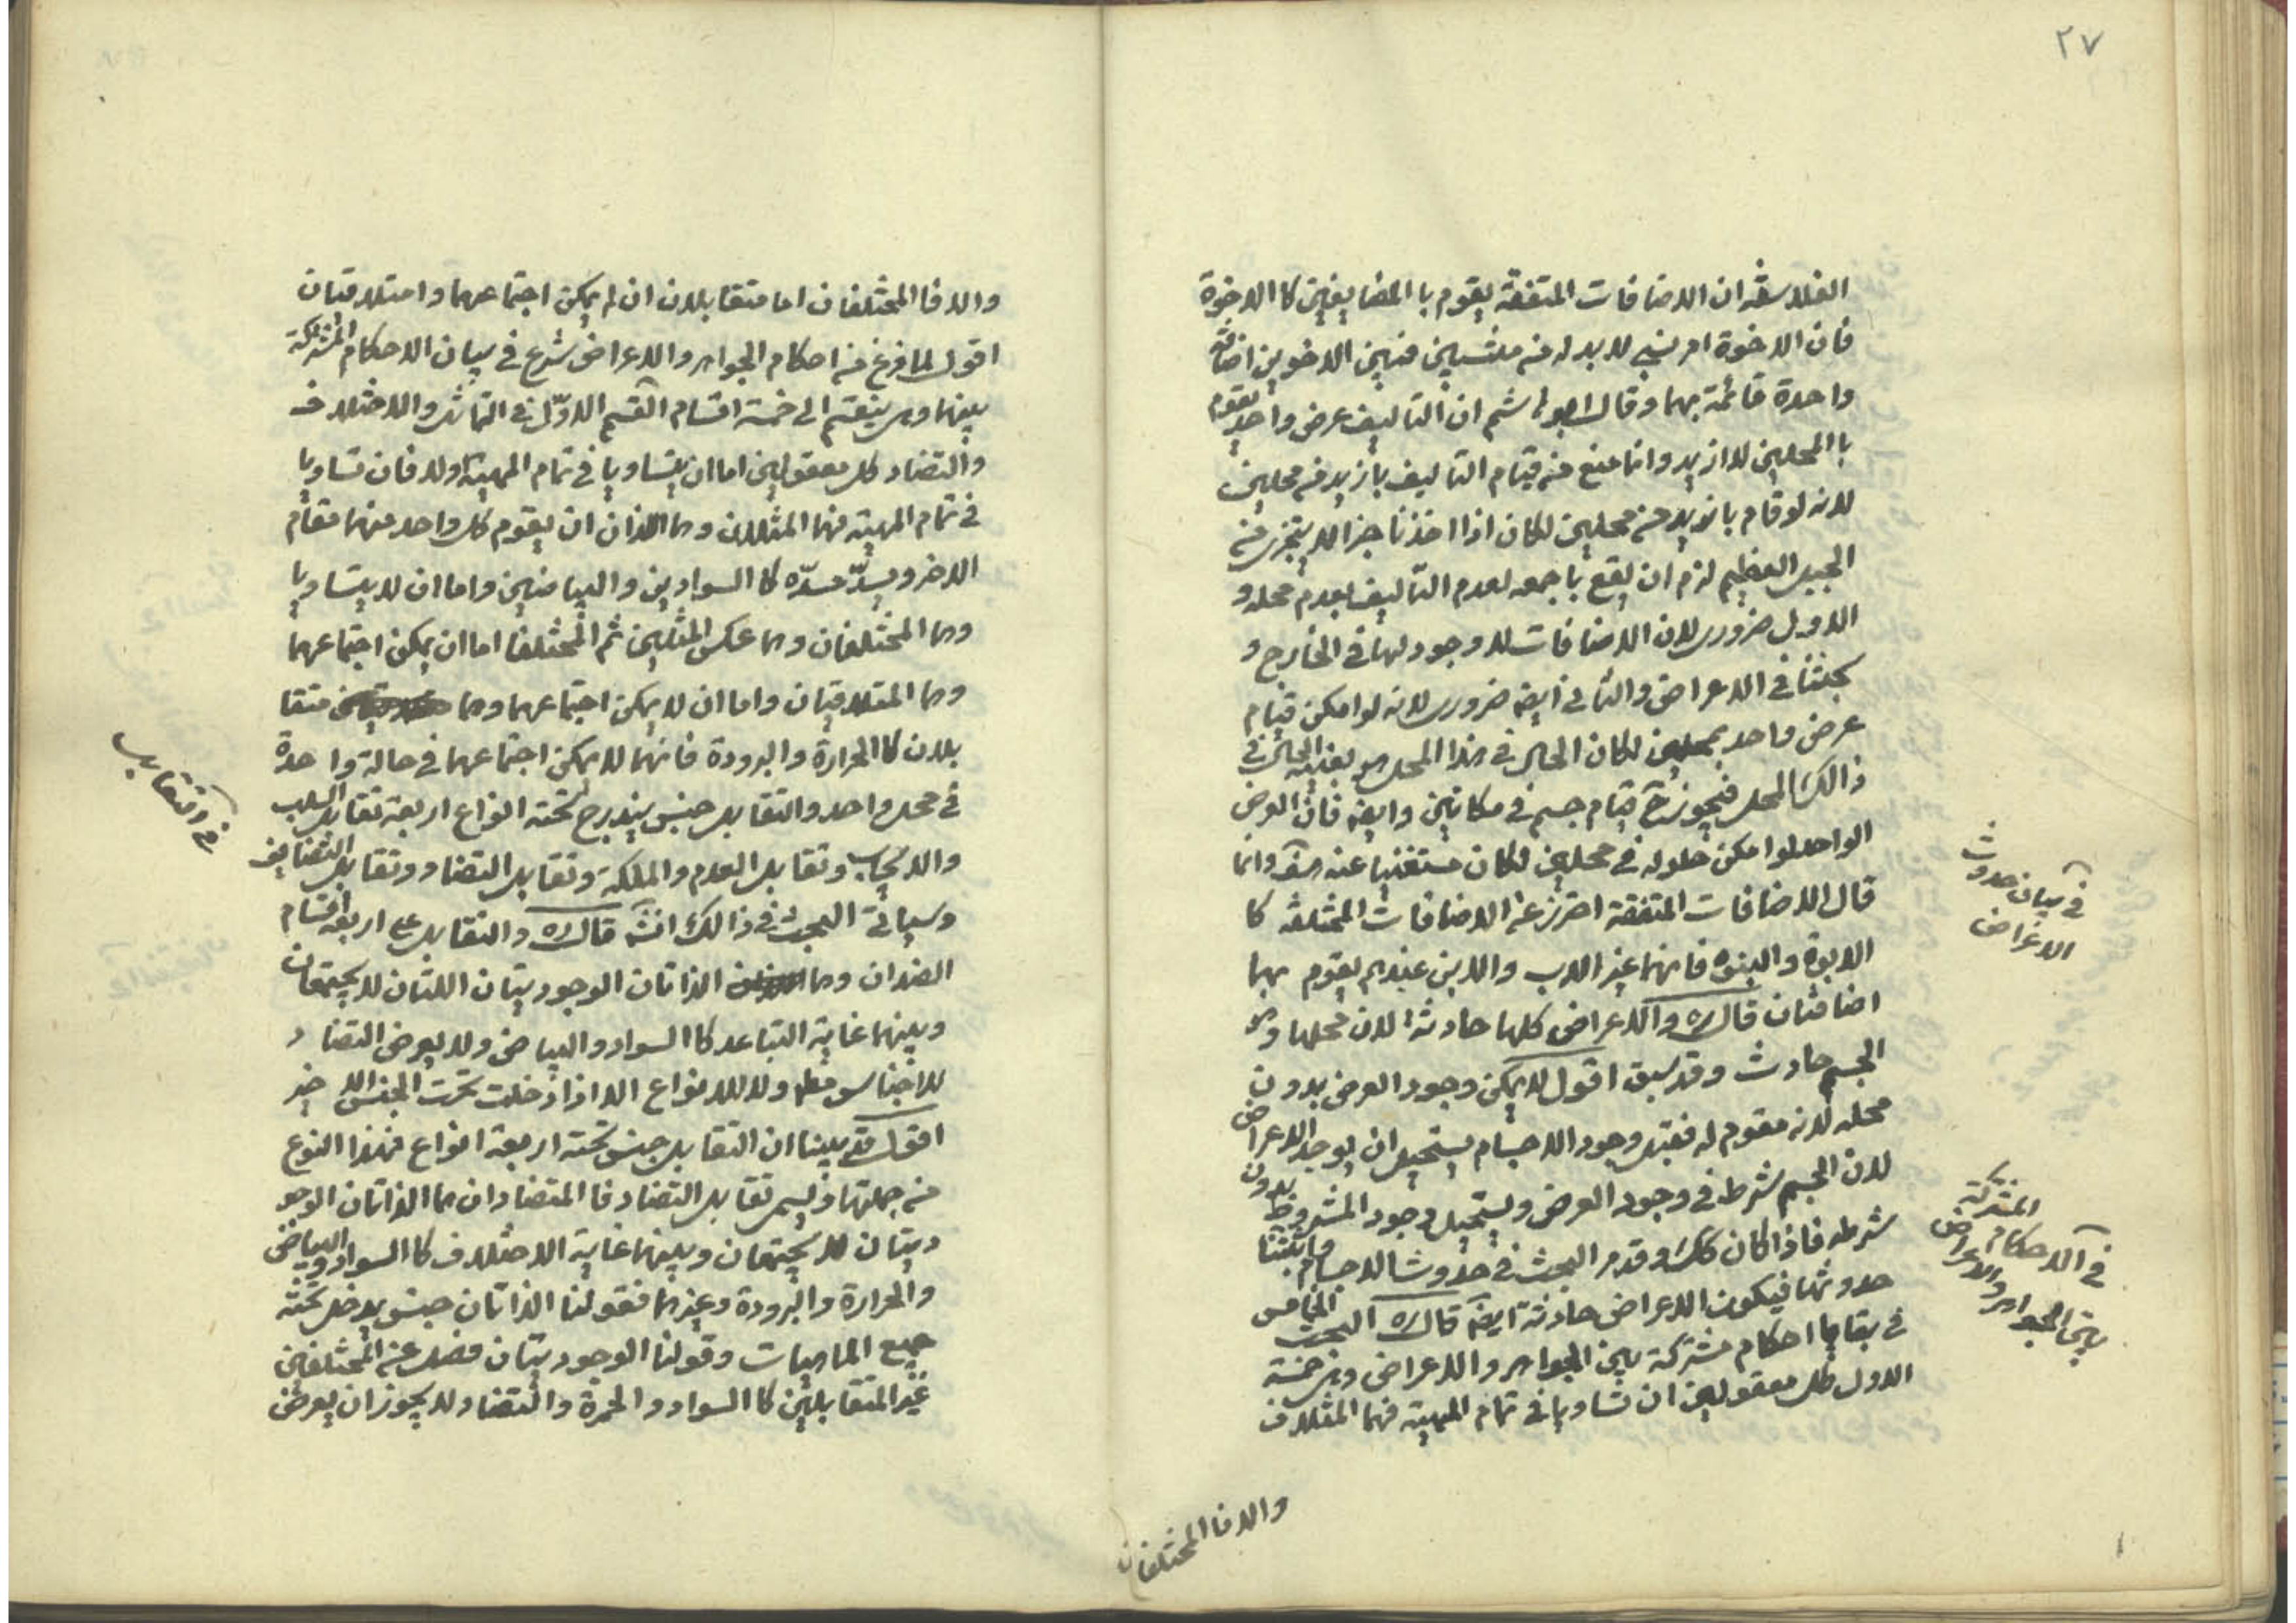 ٢٧
الفلاسفه ان الاضافات المتفقة يقوم با المضايفين كا الاخوة
فان الاخوة امر نسبي لا بد له من منتسبين فبين الاخوين اضافة
واحدة قائمة بهما وقال ابو هاشم ان التأليف عرض واحد يقوم
با المحلين لا ازيد وانما منع من قيام التاليف بازيد من محلين
لانه لو قام بازيد من محلين لكان اذا اخذنا جزا لا يتجزى من
الجبل العظيم لزم ان يقع باجمعه لعدم التأليف بعدم محله و
الاول ضرورى لان الاضافات لا وجود لها فى الخارج و
بحثنا فى الاعراض والثانى ايضه ضرورى لانه لو امكن قيام
عرض واحد بمحلين لكان الحال فى هذا المحل هو بعينه الحال فى
ذالك المحل فيجوز ح قيام جسم فى مكانين وايضه فان العرض
الواحد لو امكن حلوله فى محلين لكان مستغنيا عنه هف وانما
قال الاضافات المتفقة احترز عن الاضافات المختلفه كا
الابوة والبنوه فانهما غير الاب والابن عندهم يقوم بهما
اضافتان قال ره والاعراض كلها حادثة لان محلها وهو
الجسم حادث وقد سبق اقول لا يمكن وجود العرض بدون
محله لانه مقوم له فقبل وجود الاجسام يستحيل ان يوجد الاعراض
لان الجسم شرط فى وجود العرض ويستحيل وجود المشروط بدون
شرطه فاذا كان كك وقد مر البحث فى حدوث الاجسام واثبتنا
حدوثها فيكون الاعراض حادثة ايضه قال ره البحث الخامس
فى بقايا احكام مشتركة بين الجواهر والاعراض وهى خمسة
الاول كل معقولين ان تساويا فى تمام المهية فهما المثلان
والا فا المختلفان
فى بيان حدوث
الاعراض
المشتركة
فى الاحكام
بين الجواهر والاعراض
والا فا المختلفان اما متقابلان ان لم يمكن اجتماعهما وا متلاقيان
اقول لما فرغ من احكام الجواهر والاعراض شرع فى بيان الاحكام المشتركة
بينهما وهى ينقسم الى خمسة اقسام القسم الاوّل فى التماثل والاختلاف
والتضاد كل معقولين اما ان يتساويا فى تمام المهية اولا فان تساويا
فى تمام المهية فهما المثلان وهما اللذان ان يقوم كل واحد منهما مقام
الاخر ويسدّ مسدّه كا السوادين والبياضين واما ان لا يتساويا
وهما المختلفان وهما عكس المثلين ثم المختلفا اما ان يمكن اجتماعهما
وهما المتلاقيان واما ان لا يمكن اجتماعهما وهما متقا
بلان كا الحرارة والبرودة فانهما لا يمكن اجتماعهما فى حالة واحدة
فى محل واحد والتقابل جنس يندرج تحته انواع اربعة تقابل السلب
والايجاب وتقابل العدم والملكة وتقابل التضاد وتقابل التضايف
وسيأتى البحث فى ذالك انشه قال ره والتقابل على اربعة اقسام
الضدان وهما الذاتان الوجوديتان اللتان لا يجتمعان
وبينهما غاية التباعد كا السواد والبياض ولا يعرض التضاد
للاجناس مط ولا للانواع الا اذا دخلت تحت الجنس الاخير
اقول قد بينا ان التقابل جنس تحته اربعة انواع فهذا النوع
من جملتها ويسمى تقابل التضاد فا المتضادان هما الذاتان الوجو
ديتان لا يجتمعان وبينهما غاية الاختلاف كا السواد والبياض
والحرارة والبرودة وغيرهما فقولنا الذاتان جنس يدخل تحته
جميع الماهيات وقولنا الوجوديتان فصل عن المختلفين
غير المتقابلين كا السواد والحمرة والتضاد لا يجوز ان يعرض
فى التقابل